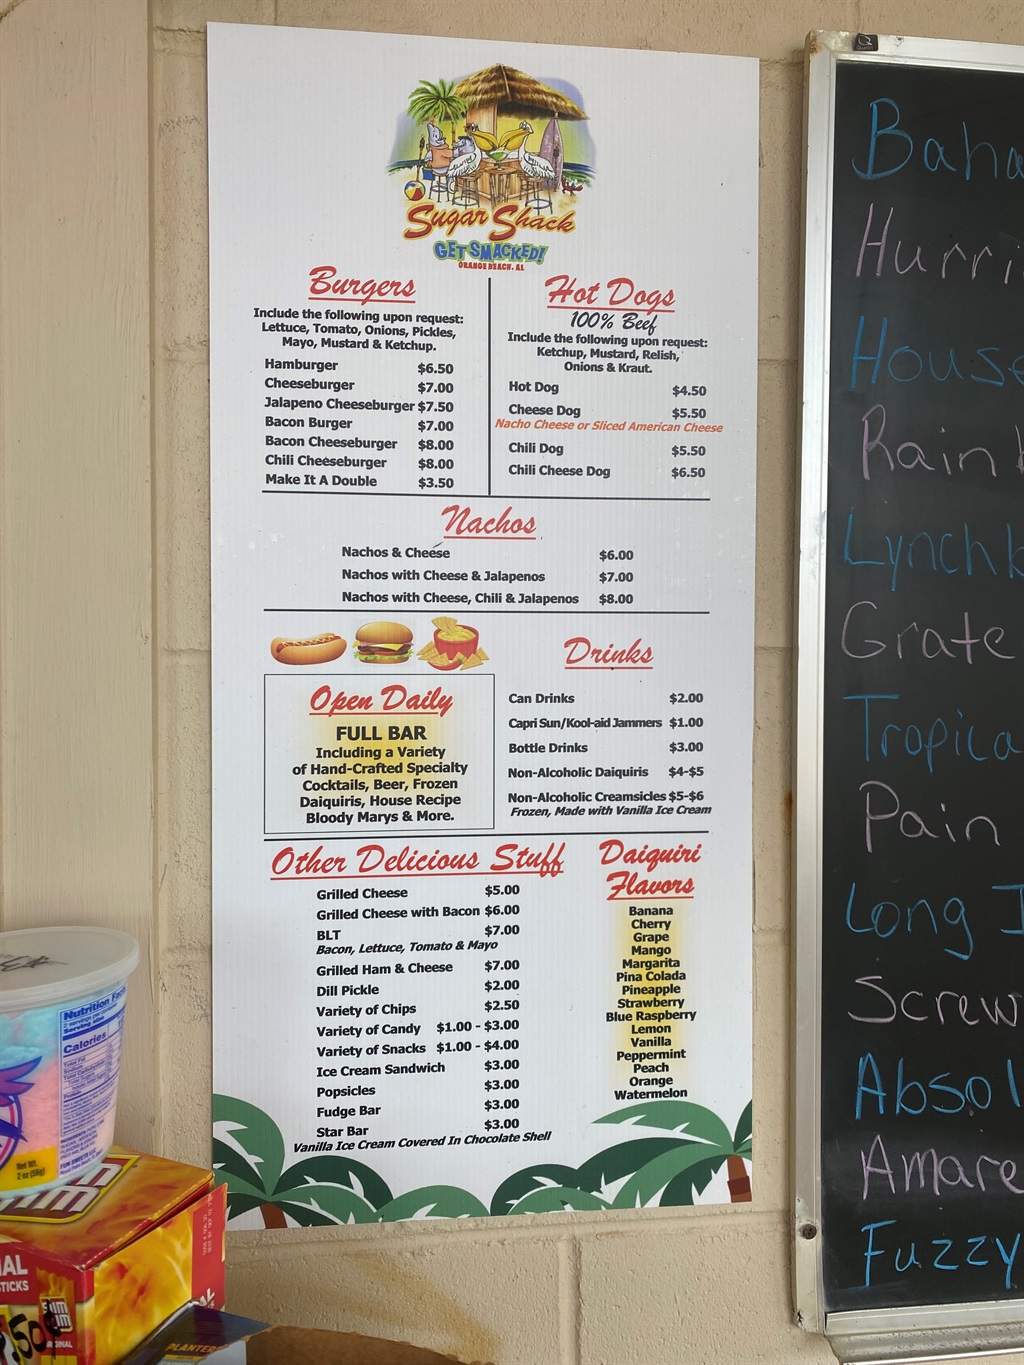 Sugar Shack
GET SMACKED!
ORANGE BEACH, AL
Burgers
Include the following upon request:
Lettuce, Tomato, Onions, Pickles,
Mayo, Mustard & Ketchup.
Hamburger $6.50
Cheeseburger $7.00
Jalapeno Cheeseburger $7.50
Bacon Burger $7.00
Bacon Cheeseburger $8.00
Chili Cheeseburger $8.00
Make It A Double $3.50
Hot Dogs
100% Beef
Include the following upon request:
Ketchup, Mustard, Relish,
Onions & Kraut.
Hot Dog $4.50
Cheese Dog $5.50
Nacho Cheese or Sliced American Cheese
Chili Dog $5.50
Chili Cheese Dog $6.50
Nachos
Nachos & Cheese $6.00
Nachos with Cheese & Jalapenos $7.00
Nachos with Cheese, Chili & Jalapenos $8.00
Open Daily
FULL BAR
Including a Variety
of Hand-Crafted Specialty
Cocktails, Beer, Frozen
Daiquiris, House Recipe
Bloody Marys & More.
Drinks
Can Drinks $2.00
Capri Sun/Kool-aid Jammers $1.00
Bottle Drinks $3.00
Non-Alcoholic Daiquiris $4-$5
Non-Alcoholic Creamsicles $5-$6
Frozen, Made with Vanilla Ice Cream
Other Delicious Stuff
Grilled Cheese $5.00
Grilled Cheese with Bacon $6.00
BLT $7.00
Bacon, Lettuce, Tomato & Mayo
Grilled Ham & Cheese $7.00
Dill Pickle $2.00
Variety of Chips $2.50
Variety of Candy $1.00 - $3.00
Variety of Snacks $1.00 - $4.00
Ice Cream Sandwich $3.00
Popsicles $3.00
Fudge Bar $3.00
Star Bar $3.00
Vanilla Ice Cream Covered In Chocolate Shell
Daiquiri
Flavors
Banana
Cherry
Grape
Mango
Margarita
Pina Colada
Pineapple
Strawberry
Blue Raspberry
Lemon
Vanilla
Peppermint
Peach
Orange
Watermelon
Baha
Hurri
House
Rain
Lynchb
Grate
Tropica
Pain
Long I
Screw
Absol
Amare
Fuzzy
Nutrition Fac
Serving size
Calories
Net Wt.
2 oz (56g)
TICKS
.50¢
PLANTER